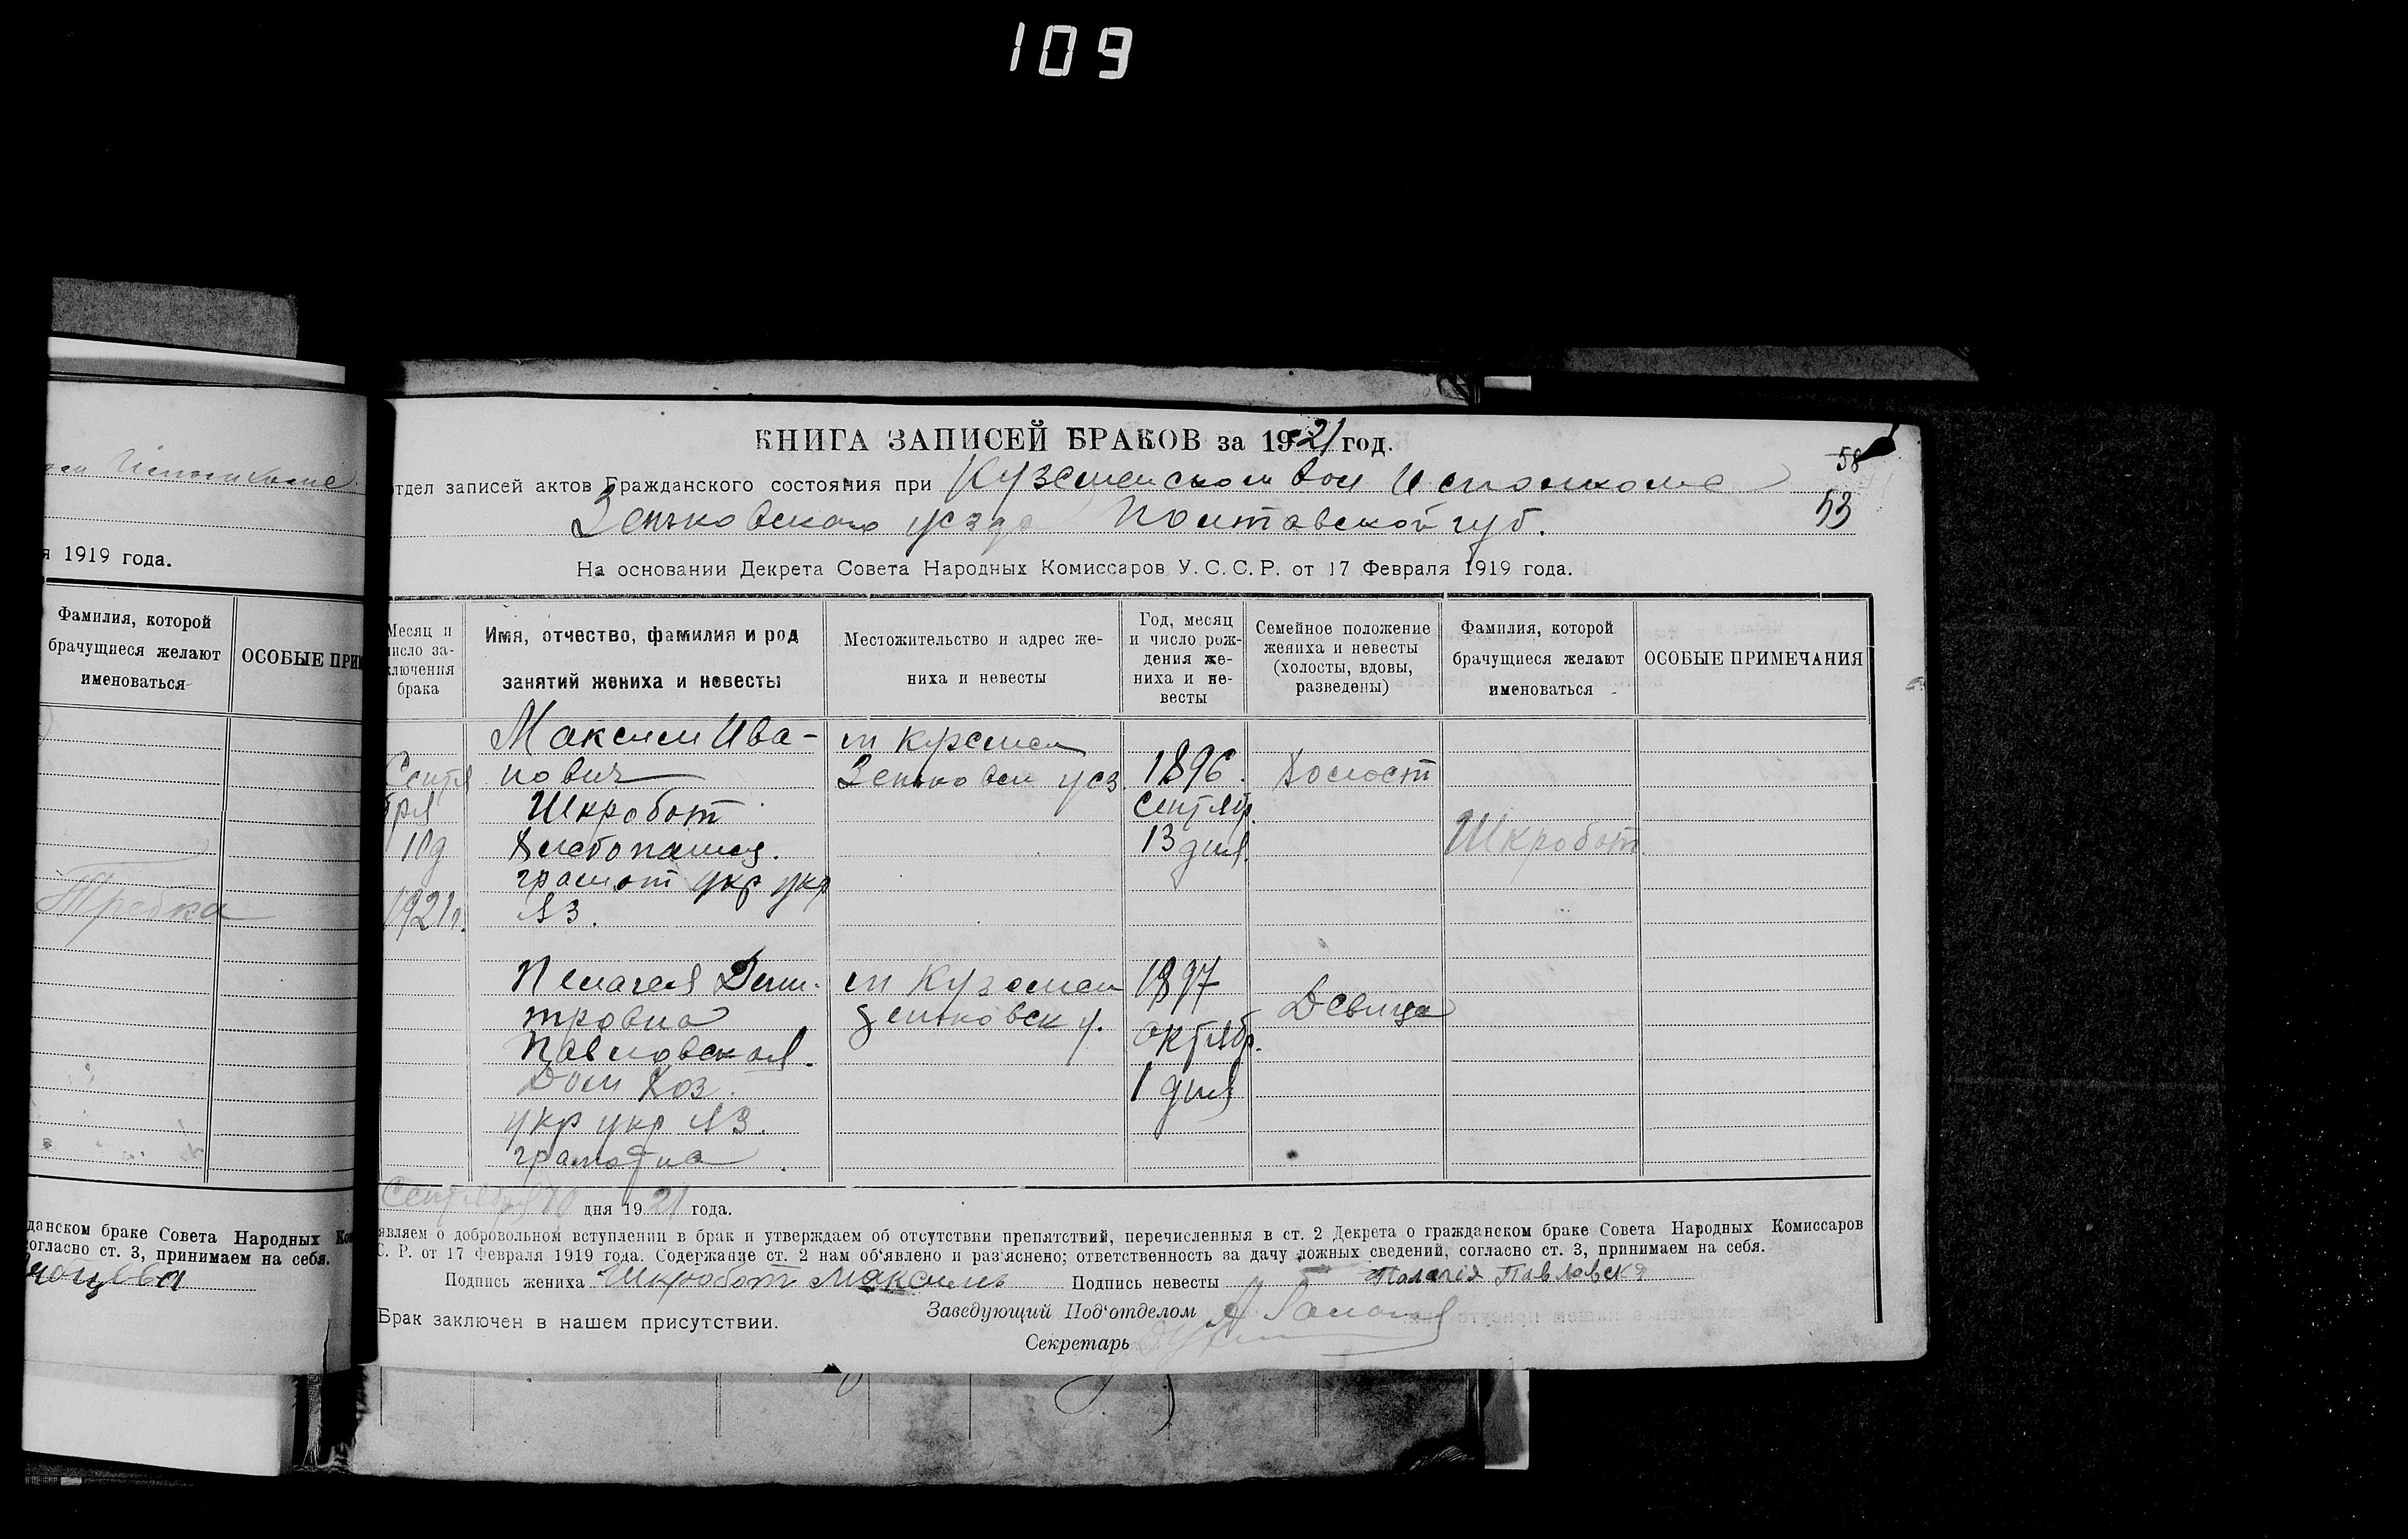 109
Исполкоме
я 1919 года.
Фамилия, которой
брачущиеся желают
именоваться
ОСОБЫЕ ПРИМ
Требка
данском браке Совета Народных Ко
огласно ст. 3, принимаем на себя.
КНИГА ЗАПИСЕЙ БРАКОВ за 1921 год.
58
отдел записей актов Гражданского состояния при Куземенском вол Исполкоме
53
Зеньковского уезда Полтавской губ.
На основании Декрета Совета Народных Комиссаров У.С.С.Р. от 17 Февраля 1919 года.
Месяц и
число за-
ключения
брака
Имя, отчество, фамилия и род
занятий жениха и невесты
Местожительство и адрес же-
ниха и невесты
Год, месяц
и число рож-
дения же-
ниха и не-
весты
Семейное положение
жениха и невесты
(холосты, вдовы,
разведены)
Фамилия, которой
брачущиеся желают
именоваться
ОСОБЫЕ ПРИМЕЧАНИЯ
Сентя
бря
10д
1921г.
Максим Ива-
нович
Шкробот
Хлебопашец.
грамот укр укр
яз.
м Куземен
Зеньковск уез
1896.
сентябр.
13 дня.
Холост
Шкробот
Пелагея Дми-
тровна
Павловская.
Дом Хоз.
укр укр яз.
грамотна
м Куземен
Зеньковск у.
1897
октябр.
1 дня
Девица
Сентября 10 дня 1921 года.
являем о добровольном вступлении в брак и утверждаем об отсутствии препятствий, перечисленныя в ст. 2 Декрета о гражданском браке Совета Народных Комиссаров
С. Р. от 17 Февраля 1919 года. Содержание ст. 2 нам об'явлено и раз'яснено; ответственность за дачу ложных сведений, согласно ст. 3, принимаем на себя.
Подпись жениха Шкробот Максимъ Подпись невесты Палагія Павловска
Заведующий Под'отделом
Брак заключен в нашем присутствии.
Секретарь